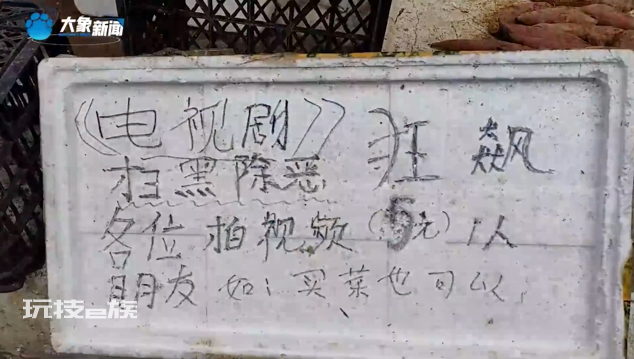 大象新闻
《电视剧》 狂 飙
扫黑除恶
各位拍视频(5元)1人
朋友如买菜也可以
玩技e族